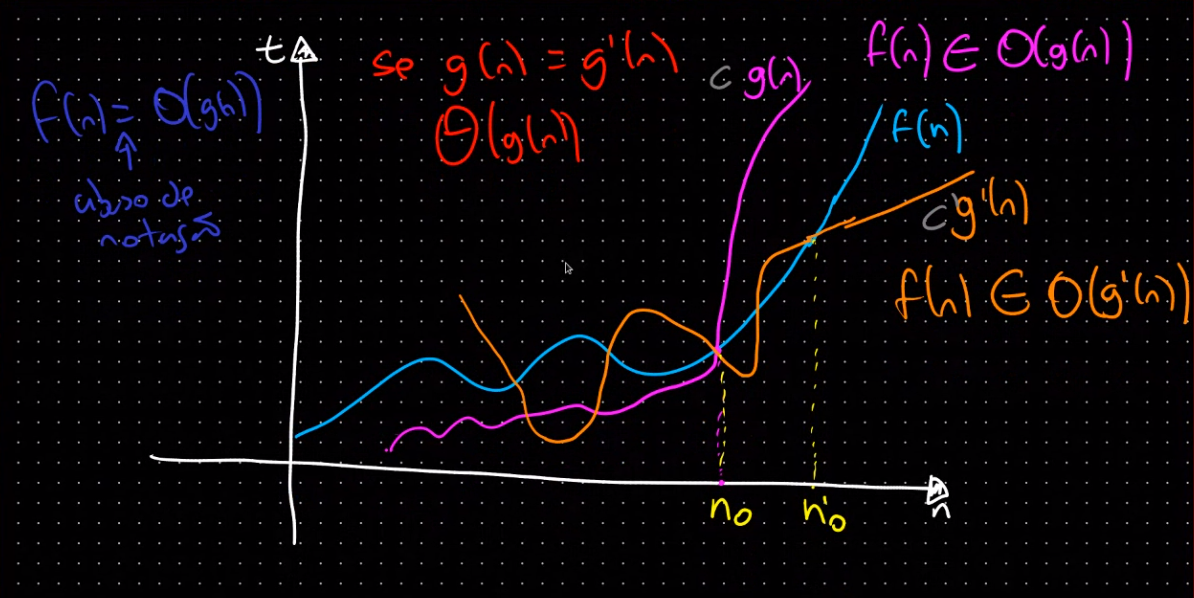 f(n) = O(g(n))
↑
abuso de
notação
t
se g(n) = g'(n)
Θ(g(n))
c g(n)
f(n) ∈ O(g(n))
f(n)
c'g'(n)
f(n) ∈ O(g'(n))
n₀
n'₀
n